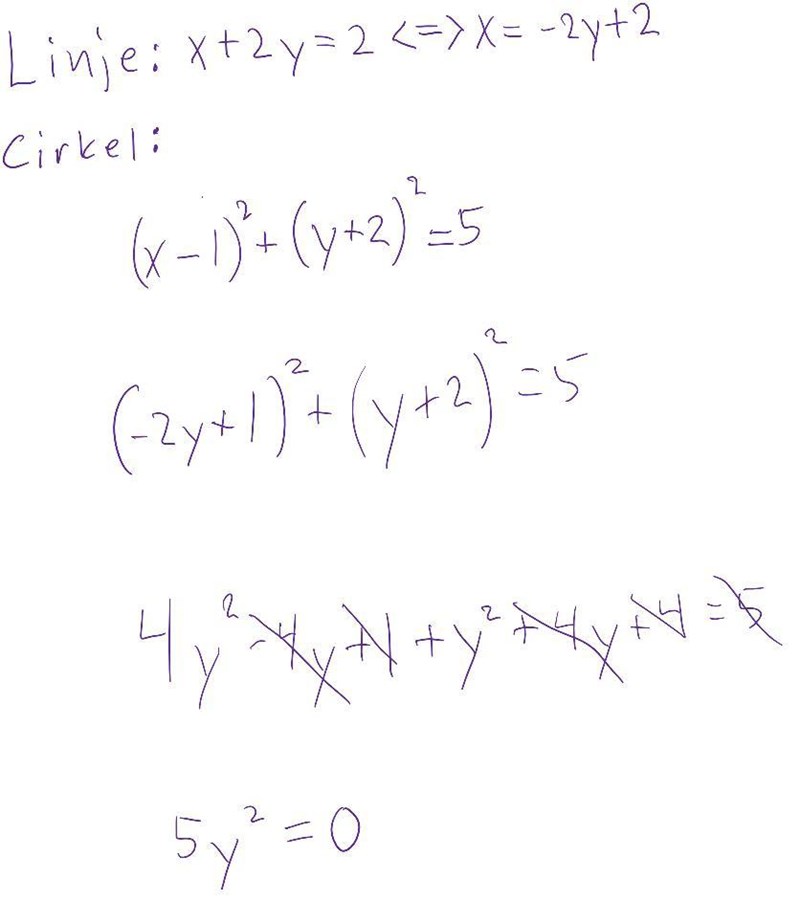 Linje: x+2y=2 <=> x= -2y+2
Cirkel:
(x-1)²+(y+2)²=5
(-2y+1)²+(y+2)²=5
4y²-4y+1+y²+4y+4=5
5y²=0